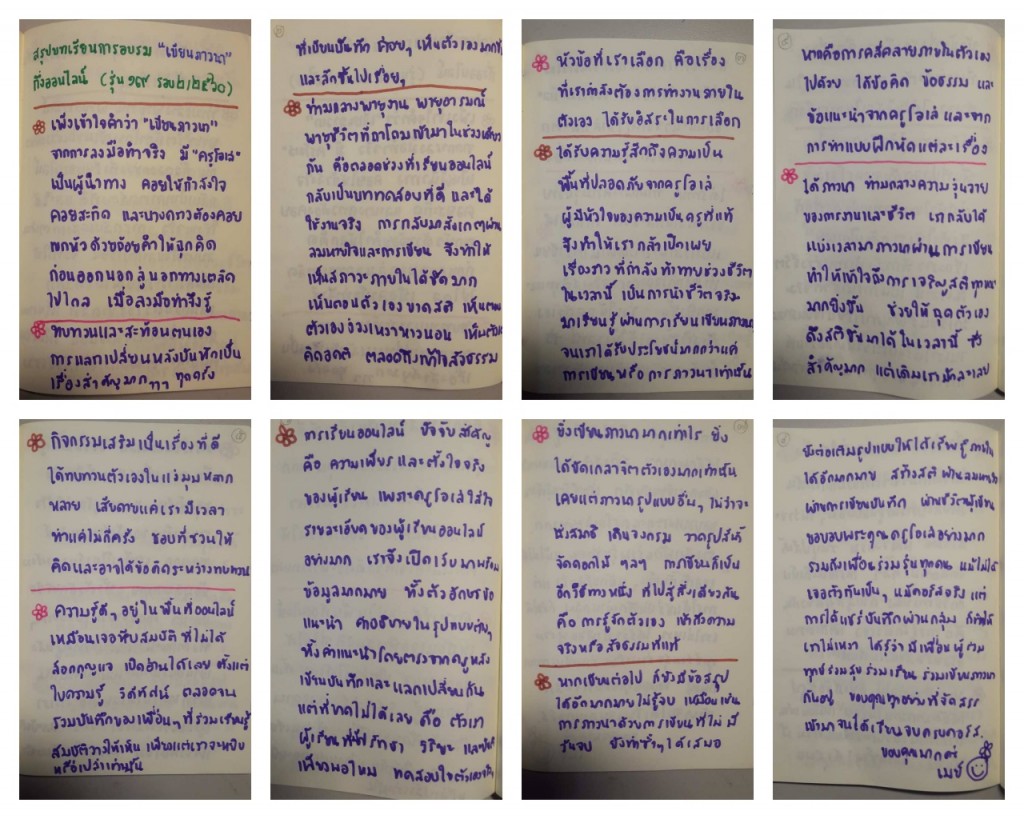 สรุปบทเรียนการอบรม "เขียนภาวนา"
กึ่งออนไลน์ (รุ่น ๑๙ รอบ ๒/๒๕๖๐)
เพิ่งเข้าใจคำว่า "เขียนภาวนา"
จากการลงมือทำจริง มี "ครูโอเล่"
เป็นผู้นำทาง คอยให้กำลังใจ
คอยสะกิด และบางคราวต้องคอย
เขกหัวด้วยถ้อยคำให้ฉุกคิด
ก่อนออกนอกลู่นอกทางเตลิด
ไปไกล เมื่อลงมือทำจึงรู้
ทบทวนและสะท้อนตนเอง
การแลกเปลี่ยนหลังบันทึกเป็น
เรื่องสำคัญมาก ๆๆ ทุกครั้ง
ที่เขียนบันทึก ค่อยๆ เห็นตัวเองมาก
และลึกขึ้นไปเรื่อยๆ
ท่ามกลางพายุงาน พายุอารมณ์
พายุชีวิตที่ถาโถมเข้ามาในช่วงเดียว
กัน คือตลอดช่วงที่เรียนออนไลน์
กลับเป็นบททดสอบที่ดี และได้
ใช้งานจริง การกลับมาสังเกตผ่าน
ลมหายใจและการเขียน จึงทำให้
เห็นสภาวะภายในได้ชัดมาก
เห็นตอนตัวเองขาดสติ เห็นตอน
ตัวเองง่วงเหงาหาวนอน เห็น
คิดอกติ ตลอดถึงเข้าใจสัจธรรม
หัวข้อที่เราเลือก คือเรื่อง
ที่เรากำลังต้องการทำงานภายใน
ตัวเอง ได้รับอิสระในการเลือก
ได้รับความรู้สึกถึงความเป็น
พื้นที่ปลอดภัยจากครูโอเล่
ผู้มีหัวใจของความเป็นครูที่แท้
จึงทำให้เรากล้าเปิดเผย
เรื่องราวที่กำลังท้าทายช่วงชีวิต
ในเวลานี้ เป็นการนำชีวิตจริง
มาเรียนรู้ผ่านการเรียนเขียนภาวนา
จนเราได้รับประโยชน์มากกว่าแค่
การเขียนหรือการภาวนาเท่านั้น
หากคือการคลี่คลายภายในตัวเอง
ไปด้วย ได้ข้อคิด ข้อธรรม และ
ข้อแนะนำจากครูโอเล่ และจาก
การทำแบบฝึกหัดแต่ละเรื่อง
ได้ภาวนา ท่ามกลางความวุ่นวาย
ของการงานและชีวิต เรากลับได้
แบ่งเวลามาภาวนาผ่านการเขียน
ทำให้เข้าใจถึงการเจริญสติ
มากยิ่งขึ้น ช่วยให้ฉุดตัวเอง
ดึงสติขึ้นมาได้ในเวลานี้ ซึ่ง
สำคัญมาก แต่เดิมเรามักละเลย
กิจกรรมเสริมเป็นเรื่องที่ดี
ได้ทบทวนตัวเองในแง่มุมหลาก
หลาย เสียดายแค่เรามีเวลา
ทำแค่ไม่กี่ครั้ง ชอบที่ชวนให้
คิดและอาจได้ข้อคิดระหว่างทบทวน
ความรู้ดีๆ อยู่ในพื้นที่ออนไลน์
เหมือนเจอหีบสมบัติ ที่ไม่ได้
ล็อกกุญแจ เปิดอ่านได้เลย ตั้งแต่
ใบความรู้ วีดิทัศน์ ตลอดจน
รวมบันทึกของเพื่อนๆ ที่ร่วมเรียนรู้
สมบัติวางให้เห็น เพียงแต่เราจะหยิบ
หรือเปล่าเท่านั้น
การเรียนออนไลน์ ปัจจัยสำคัญ
คือ ความเพียร และตั้งใจจริง
ของผู้เรียน เพราะครูโอเล่ใส่ใจ
รายละเอียดของผู้เรียนออนไลน์
อย่างมาก เราจึงเปิดเว็บมาพร้อม
ข้อมูลมากมาย ทั้งตัวอักษรข้อ
แนะนำ คำอธิบายในรูปแบบต่างๆ
ทั้งคำแนะนำโดยตรงจากครูหลัง
เขียนบันทึกและแลกเปลี่ยนกัน
แต่ที่ขาดไม่ได้เลย คือ ตัวเรา
ผู้เรียนที่มีศรัทธา วิริยะ และ
เพียงพอไหม ทดสอบใจตัวเอง
ยิ่งเขียนภาวนามากเท่าไร ยิ่ง
ได้ขัดเกลาจิตตัวเองมากเท่านั้น
เคยแต่ภาวนารูปแบบอื่นๆ ไม่ว่าจะ
นั่งสมาธิ เดินจงกรม วาดรูปสีน้ำ
จัดดอกไม้ ฯลฯ การเขียนก็เป็น
อีกวิธีทางหนึ่ง ที่ไปสู่สิ่งเดียวกัน
คือ การรู้จักตัวเอง เข้าถึงความ
จริงหรือสัจธรรมที่แท้
หากเขียนต่อไป ก็ยังมีข้อสรุป
ได้อีกมากมายไม่รู้จบ เหมือนเช่น
การภาวนาด้วยการเขียนที่ไม่มี
วันจบ ยังทำซ้ำๆ ได้เสมอ
ยังต่อเติมรูปแบบให้ได้เรียนรู้ภายใน
ได้อีกมากมาย สร้างสติผ่านลมหายใจ
ผ่านการเขียนบันทึก ผ่านชีวิตผู้เขียน
ขอขอบพระคุณครูโอเล่อย่างมาก
รวมถึงเพื่อนร่วมรุ่นทุกคน แม้ไม่ได้
เจอตัวกันเป็นๆ แม้คอร์สจริง แต่
การได้แชร์บันทึกผ่านกลุ่ม ก็ทำให้
เราไม่เหงา ได้รู้ว่ามีเพื่อนผู้ร่วม
ทุกข์ร่วมสุข ร่วมเรียน ร่วมเขียนภาวนา
กันอยู่ ขอบคุณทุกอย่างที่จัดสรร
เข้ามาจนได้เรียนจบครบคอร์ส.
ขอบคุณมากค่ะ
เมย์